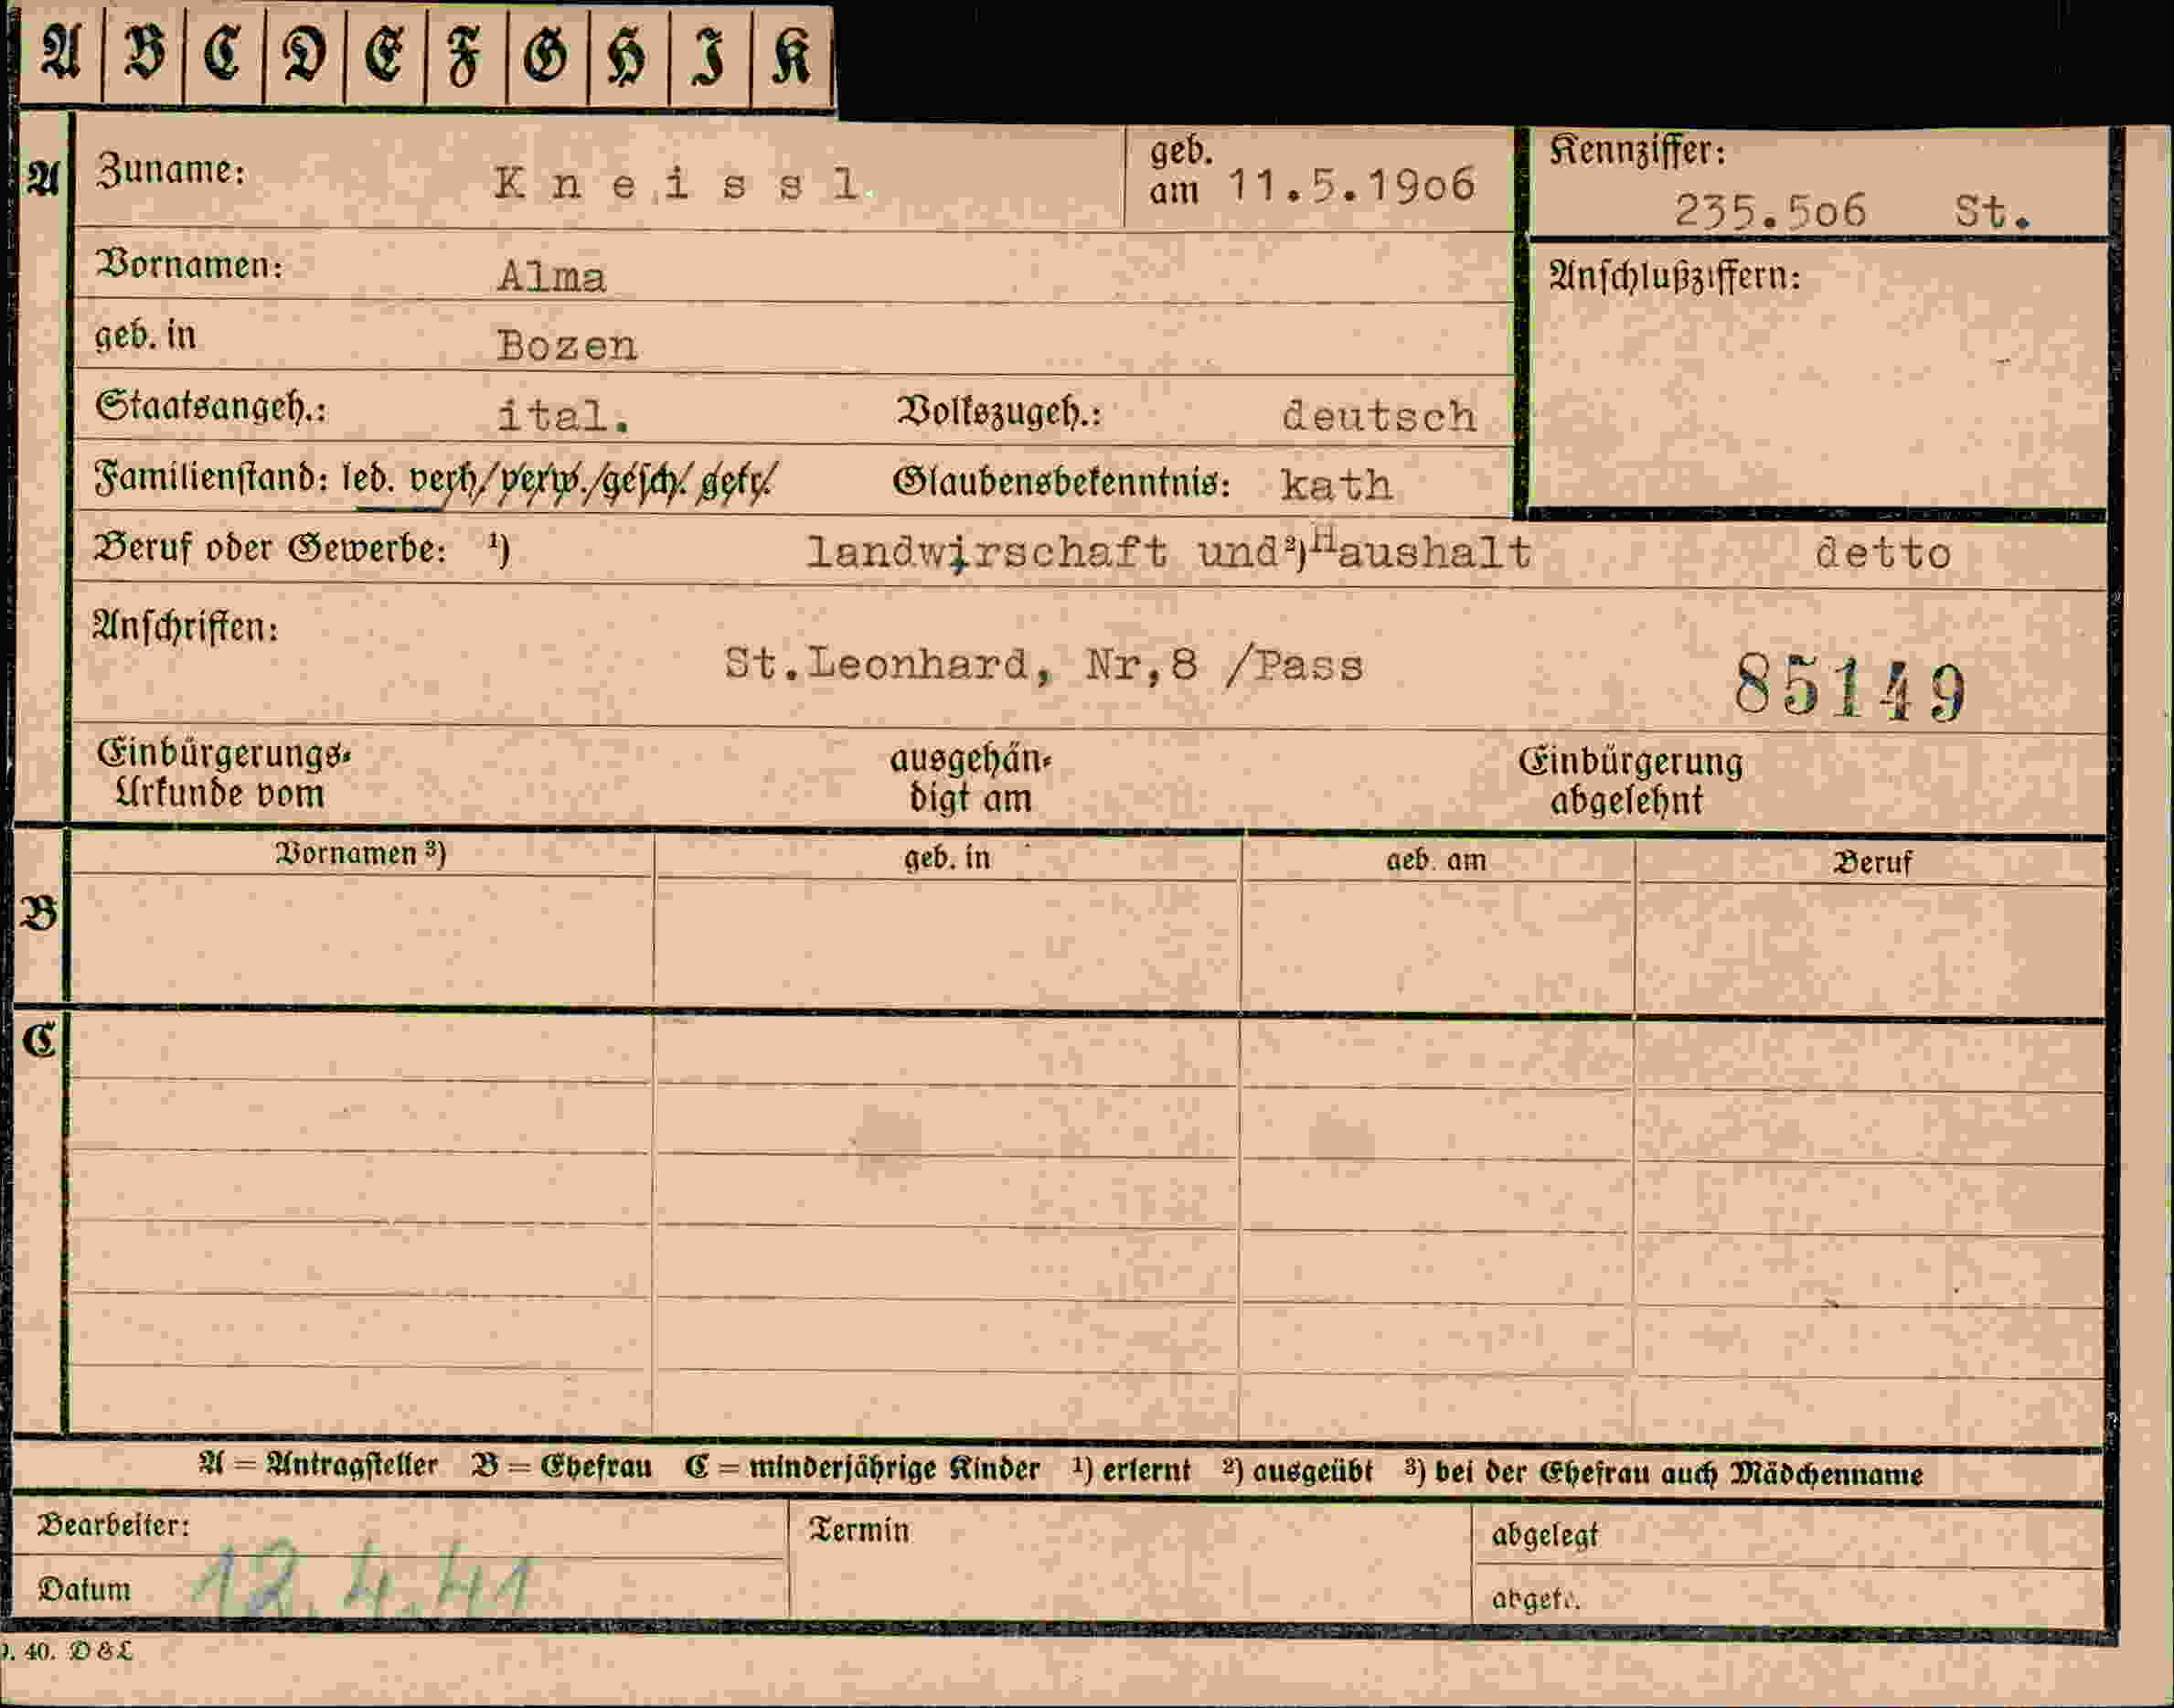 A B C D E F G H I K
A Zuname: Kneissl geb. am 11.5.1906 Kennziffer: 235.506 St.
Vornamen: Alma Anschlußziffern:
geb. in Bozen
Staatsangeh.: ital. Volkszugeh.: deutsch
Familienstand: led. verh./verw./gesch. getr. Glaubensbekenntnis: kath
Beruf oder Gewerbe: ¹) landwirschaft und ²) Haushalt detto
Anschriften:
St.Leonhard, Nr,8 /Pass 85149
Einbürgerungs-
Urkunde vom
ausgehän-
digt am
Einbürgerung
abgelehnt
Vornamen ³) geb. in geb. am Beruf
B
C
A = Antragsteller B = Ehefrau C = minderjährige Kinder ¹) erlernt ²) ausgeübt ³) bei der Ehefrau auch Mädchenname
Bearbeiter: Termin abgelegt
Datum 12.4.41
40. D & L